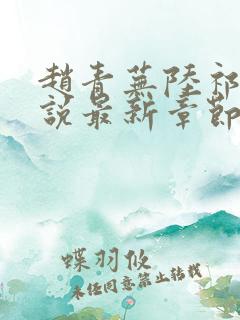 趙青蕪陸祁
說最新章節
蝶羽攸
未经同意禁止转载